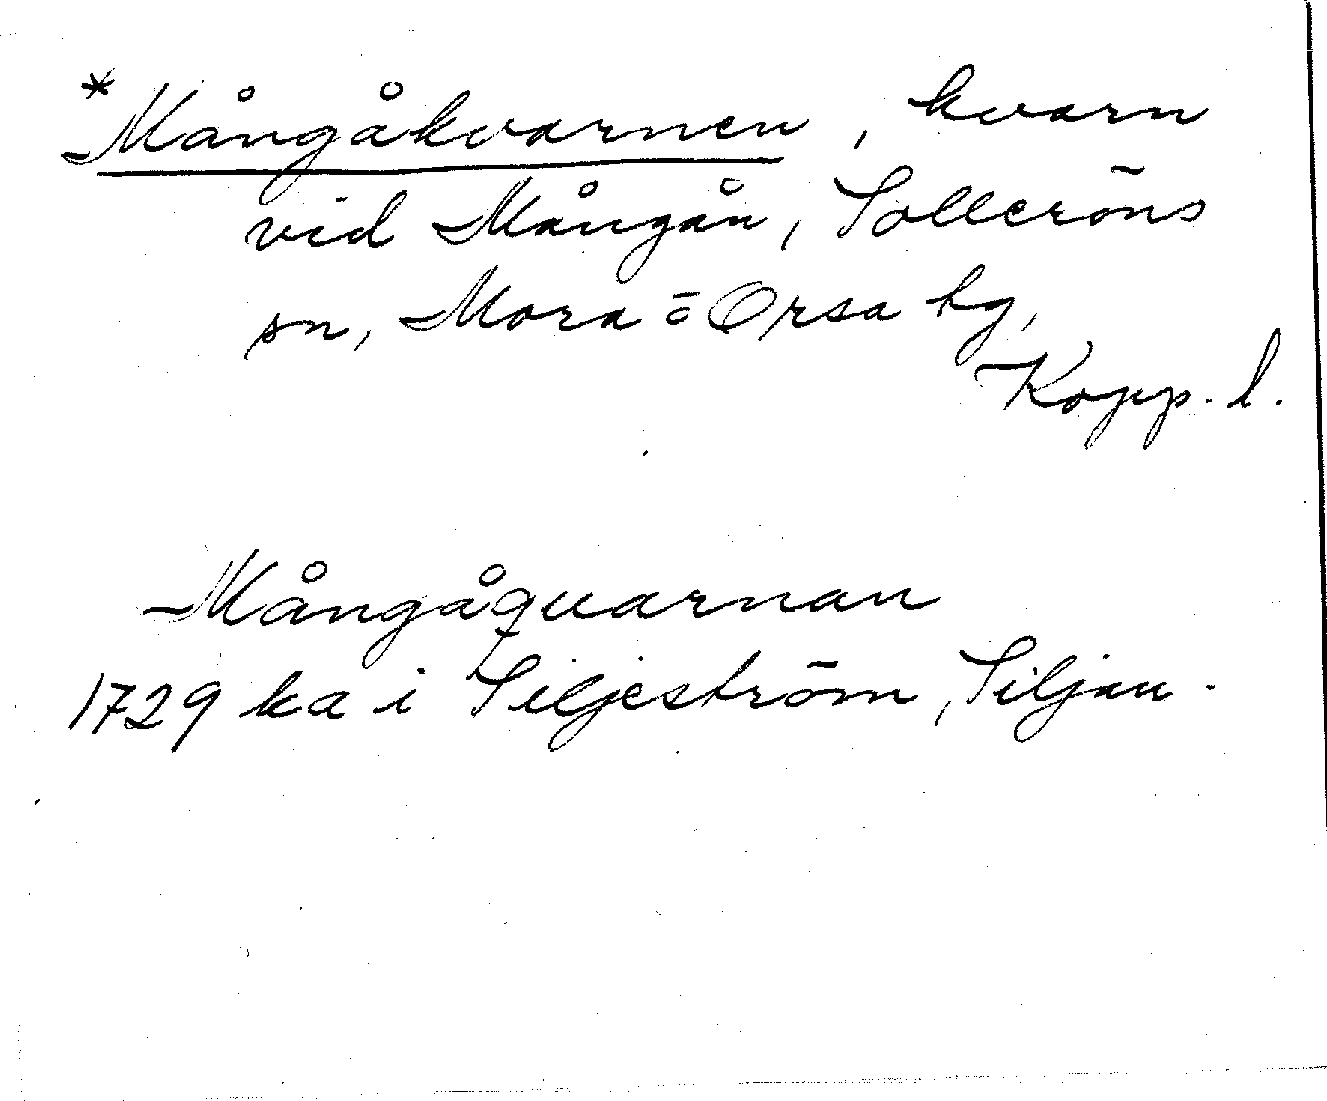 *Mångåkvarnen, kvarn
vid Mångån, Solleröns
sn, Mora o Orsa tg,
Kopp. l.
Mångåquarnan
1729 ka i Siljeström, Siljan.